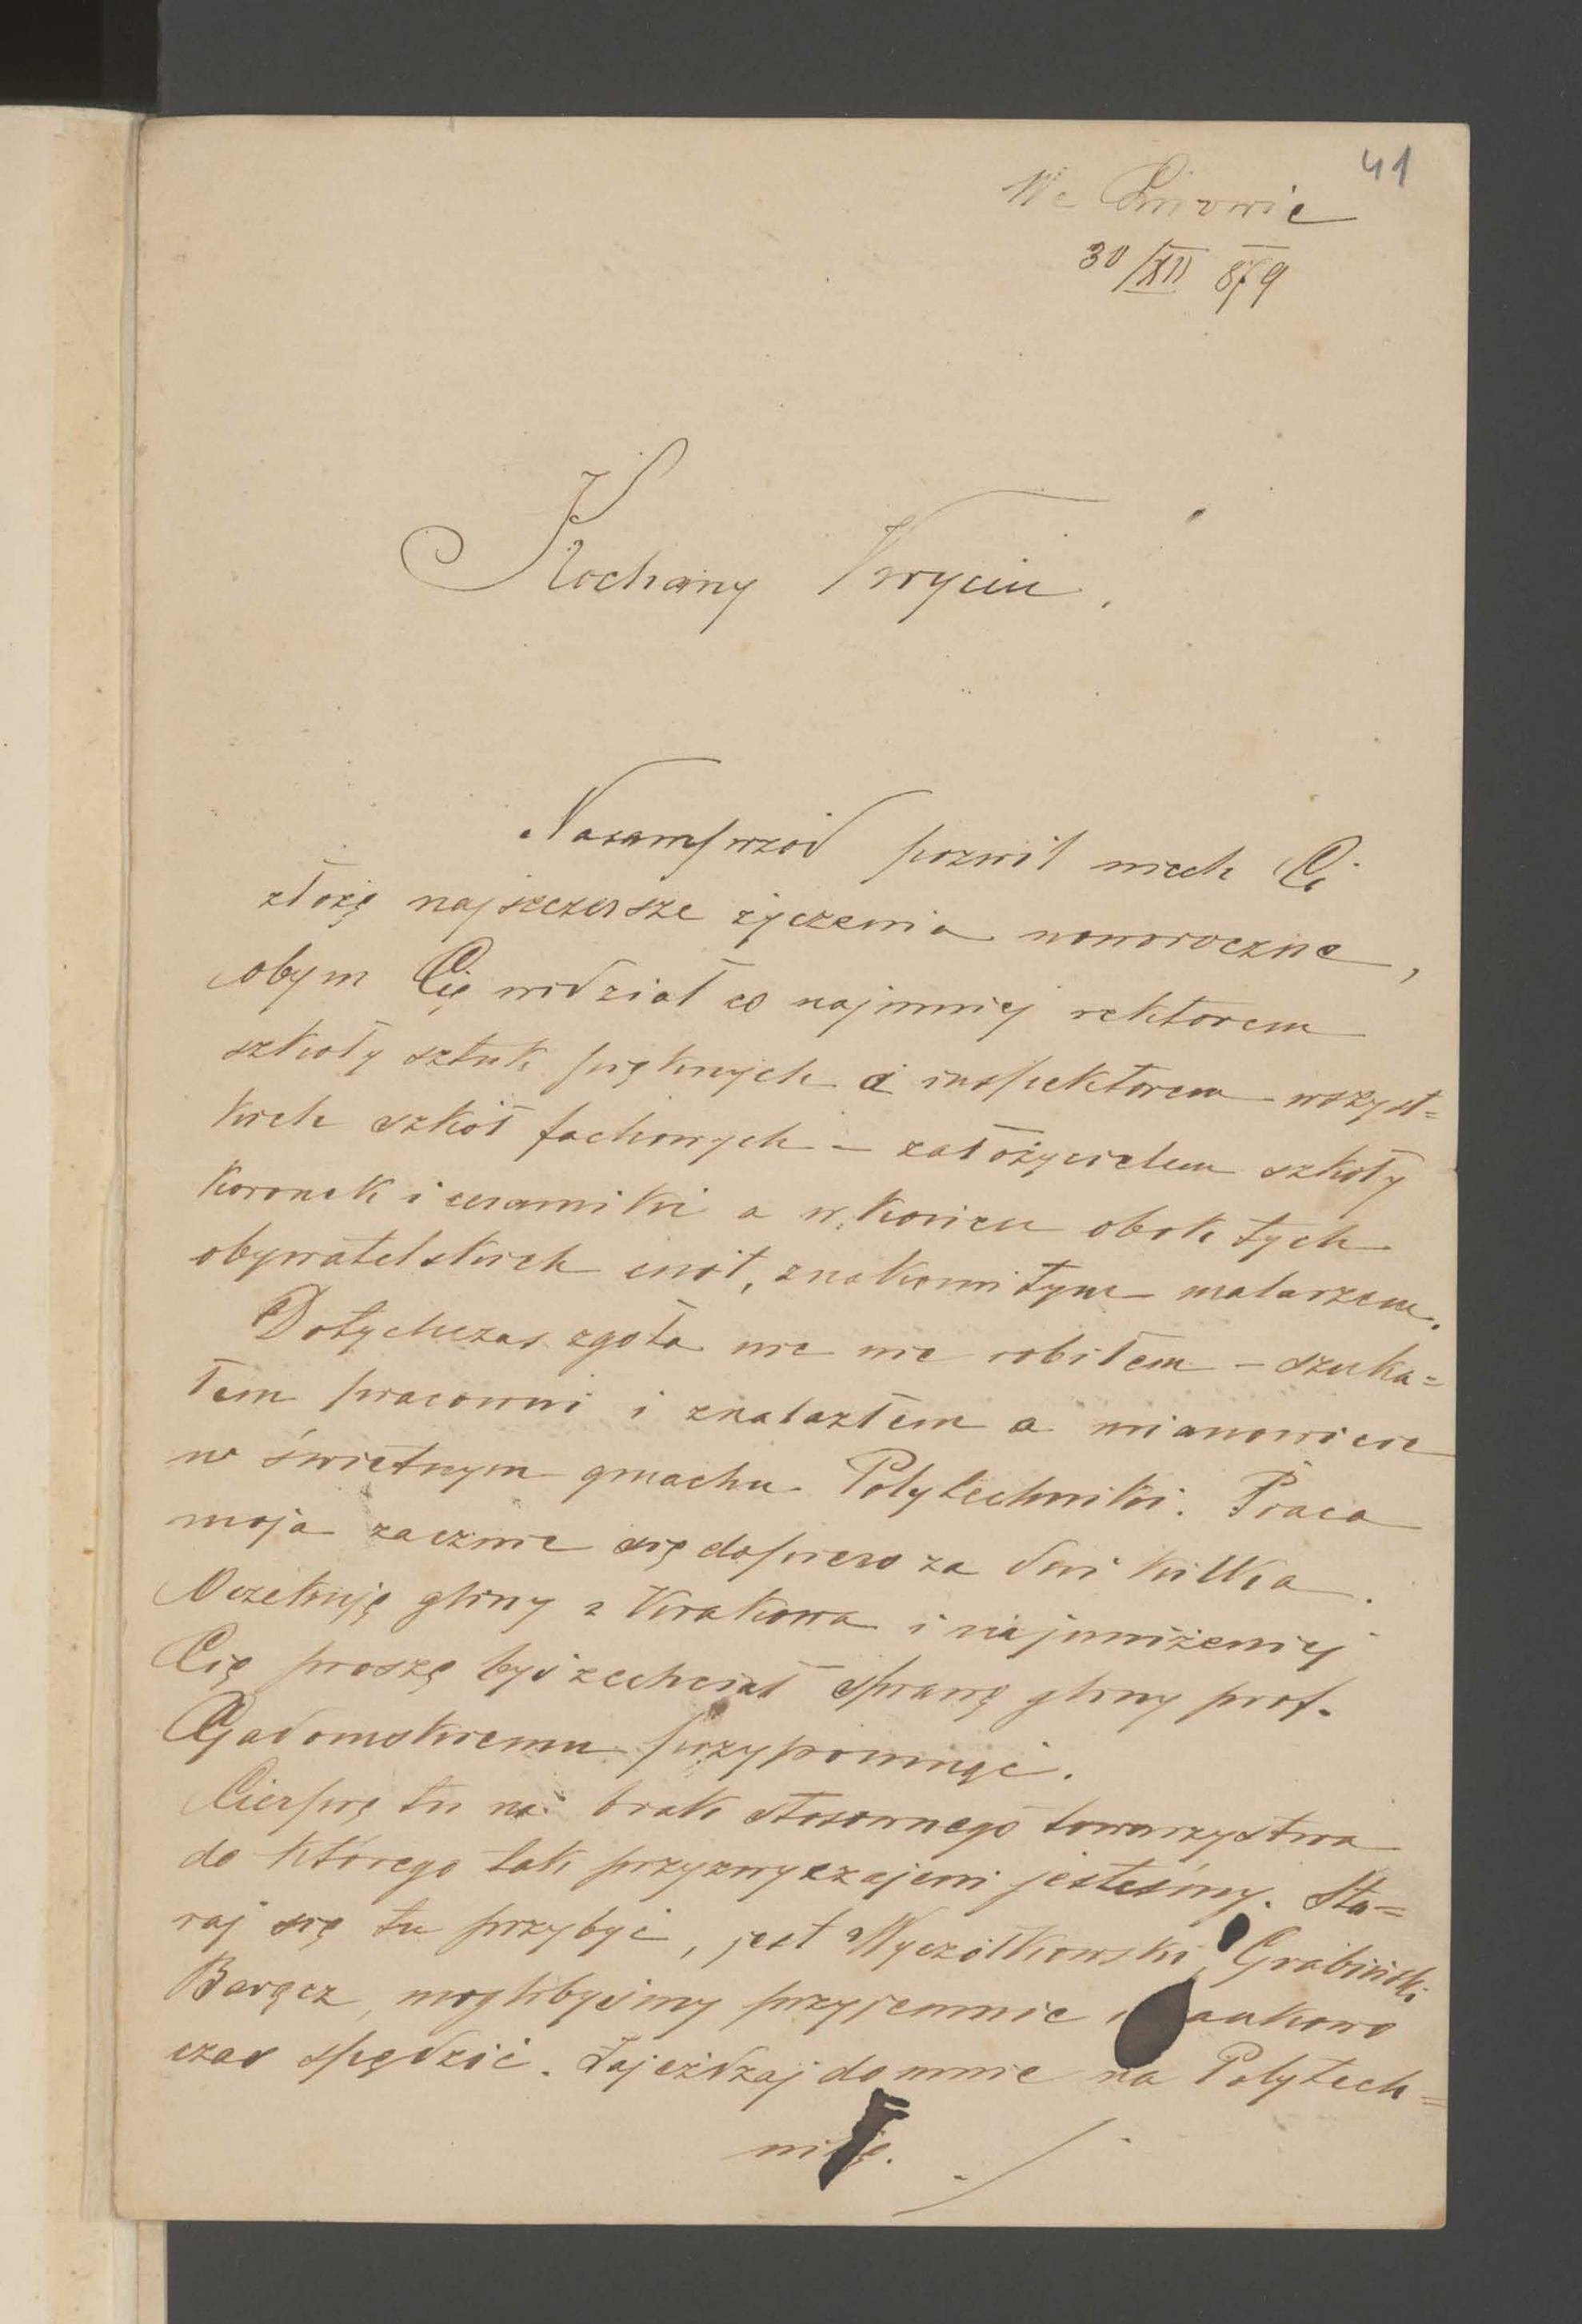 41
We Lwowie
30/XII 879
Kochany
Nasamprzód pozwól niech Ci
złożę najszczersze życzenia noworoczne,
obym Cię widział co najmniej rektorem
szkoły sztuk pięknych i inspektorem wszyst=
kich szkół fachowych – założycielem szkoły
koronek i ceramiki a w końcu obok tych
obywatelskich cnót, znakomitym malarzem.
Dotychczas zgoła nic nie robiłem – szuka=
łem pracowni i znalazłem a mianowicie
w świetnym gmachu Polytechniki. Praca
moja zacznie się dopiero za dni kilka.
Oczekuję gliny z Krakowa i najuniżeniej
Cię proszę byś zechciał sprawę gliny prof.
Gadomskiemu przypomnąć.
Cierpię tu na brak stosownego towarzystwa
do którego tak przyzwyczajeni jesteśmy. Sta=
raj się tu przybyć, jest Wyczółkowski, Grabiński
Barącz, moglibyśmy przyjemnie i naukowo
czas spędzić. Zajeżdżaj do mnie na Polytech=
nikę.